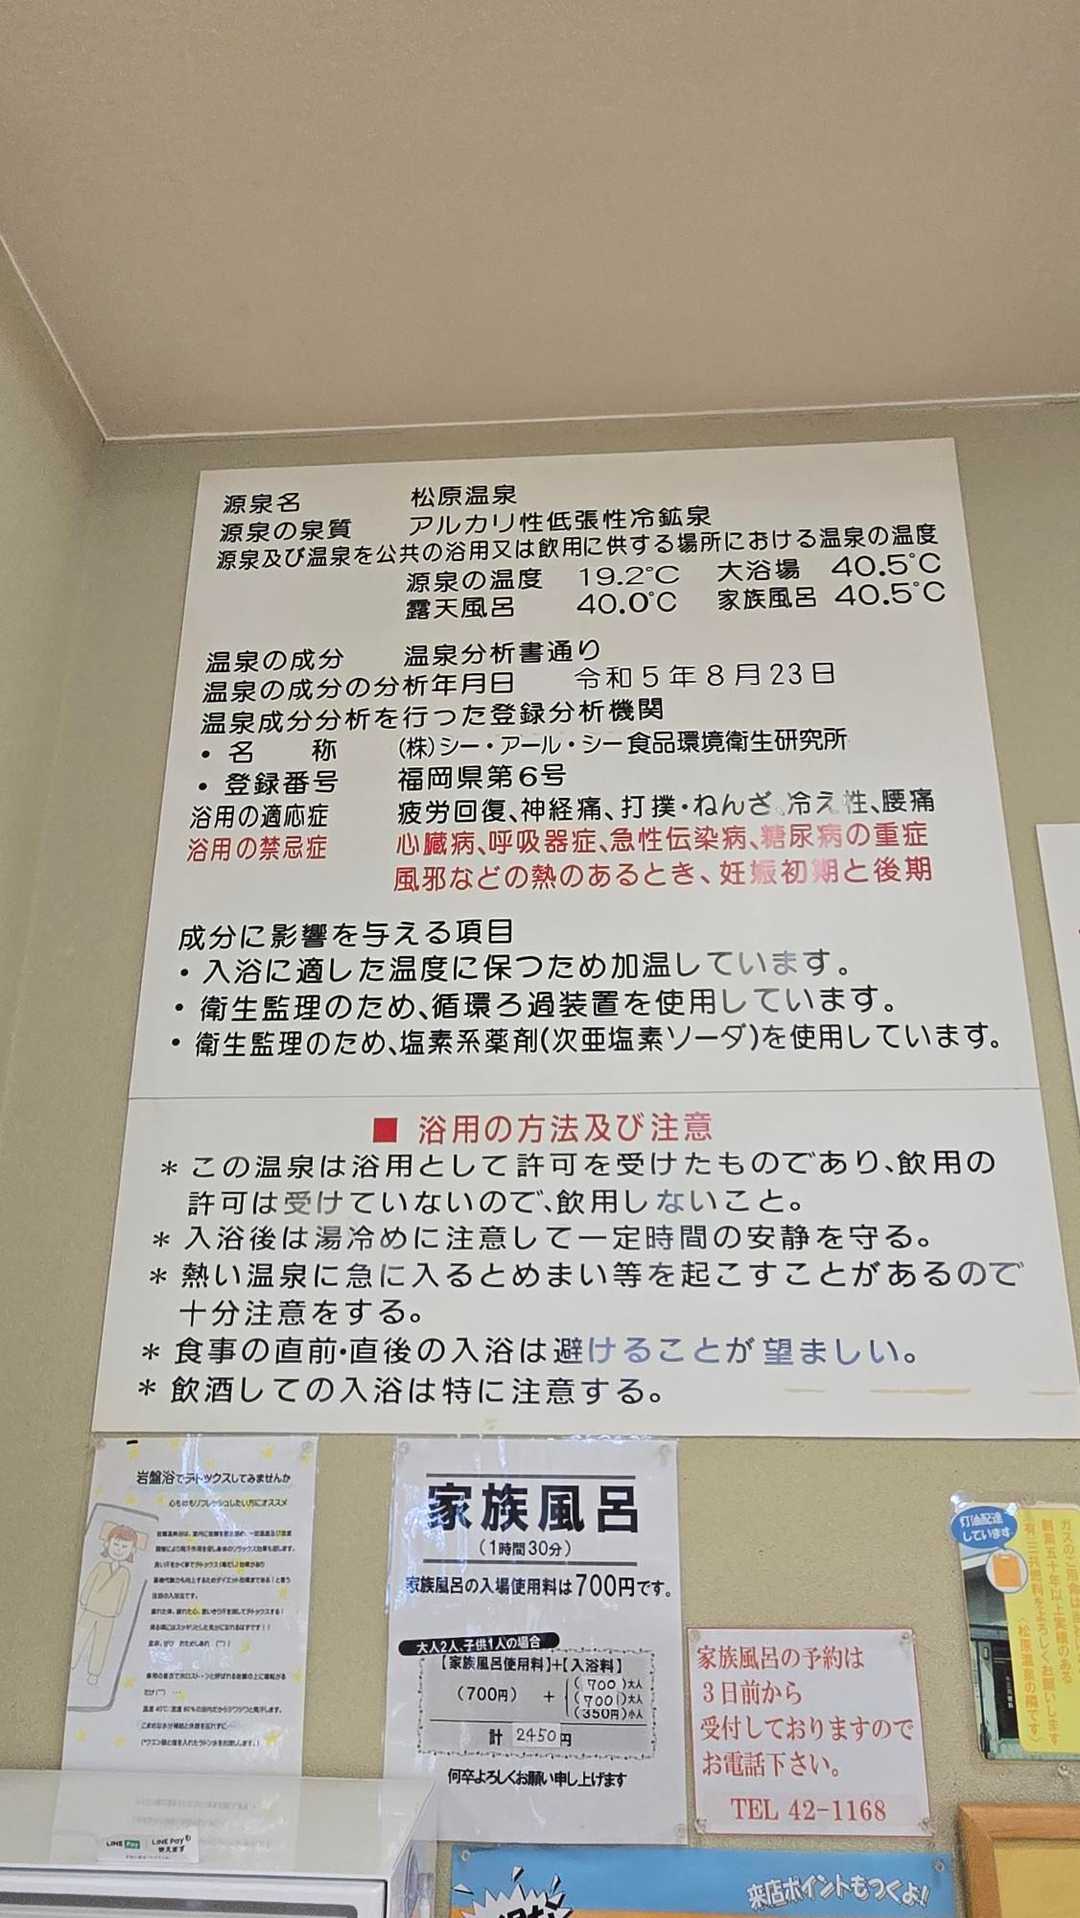 源泉名 松原温泉
源泉の泉質 アルカリ性低張性冷鉱泉
源泉及び温泉を公共の浴用又は飲用に供する場所における温泉の温度
源泉の温度 19.2℃ 大浴場 40.5℃
露天風呂 40.0℃ 家族風呂 40.5℃
温泉の成分 温泉分析書通り
温泉の成分の分析年月日 令和5年8月23日
温泉成分分析を行った登録分析機関
・名 称 (株)シー・アール・シー食品環境衛生研究所
・登録番号 福岡県第6号
浴用の適応症 疲労回復、神経痛、打撲・ねんざ、冷え性、腰痛
浴用の禁忌症 心臓病、呼吸器症、急性伝染病、糖尿病の重症
風邪などの熱のあるとき、妊娠初期と後期
成分に影響を与える項目
・入浴に適した温度に保つため加温しています。
・衛生監理のため、循環ろ過装置を使用しています。
・衛生監理のため、塩素系薬剤(次亜塩素ソーダ)を使用しています。
■ 浴用の方法及び注意
＊この温泉は浴用として許可を受けたものであり、飲用の
許可は受けていないので、飲用しないこと。
＊入浴後は湯冷めに注意して一定時間の安静を守る。
＊熱い温泉に急に入るとめまい等を起こすことがあるので
十分注意をする。
＊食事の直前・直後の入浴は避けることが望ましい。
＊飲酒しての入浴は特に注意する。
岩盤浴でデトックスしてみませんか
心もほもリフレッシュしたい方にオススメ
家族風呂
(1時間30分)
家族風呂の入場使用料は700円です。
大人2人、子供1人の場合
【家族風呂使用料】+【入浴料】
(700円) + (700)大人
(700)大人
(350円)小人
計 2450円
何卒よろしくお願い申し上げます
家族風呂の予約は
3日前から
受付しておりますので
お電話下さい。
TEL 42-1168
灯油配達
しています
ガスのご用命は
創業五十年以上実績のある
(有)三共燃料をよろしくお願いします
(松原温泉の隣です)
LINE Pay LINE Payも
使えます
来店ポイントもつくよ!